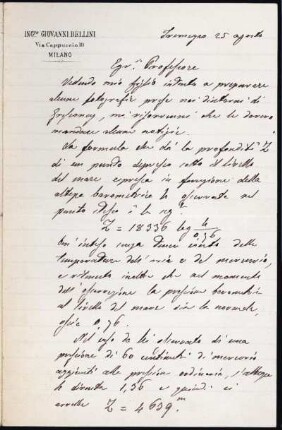 ING.re GIOVANNI BELLINI
Via Cappuccio 18
MILANO
25 agosto
Egr.o Professore
Vedendo mio figlio indotto a preparare
alcune fotografie prese nei dintorni di
mi che le devo
mandare alcune notizie.
La formula che dà la profondità Z
di un punto depresso sotto il livello
del mare espressa in funzione della
altezza barometrica h osservata nel
punto stesso è la seg.
Z = 18336 log h/0,76
ben inteso senza tener conto della
temperatura dell'aria e del mercurio,
e ritenuto inoltre che nel momento
dell'osservazione la pressione barometrica
al livello del mare sia la normale,
cioè 0,76.
Nel caso da lei di una
pressione di 60 centimetri di mercurio
aggiunti alla pressione ordinaria, l'altezza
h diventa 1,36 e quindi si
avrebbe Z = 4639.m